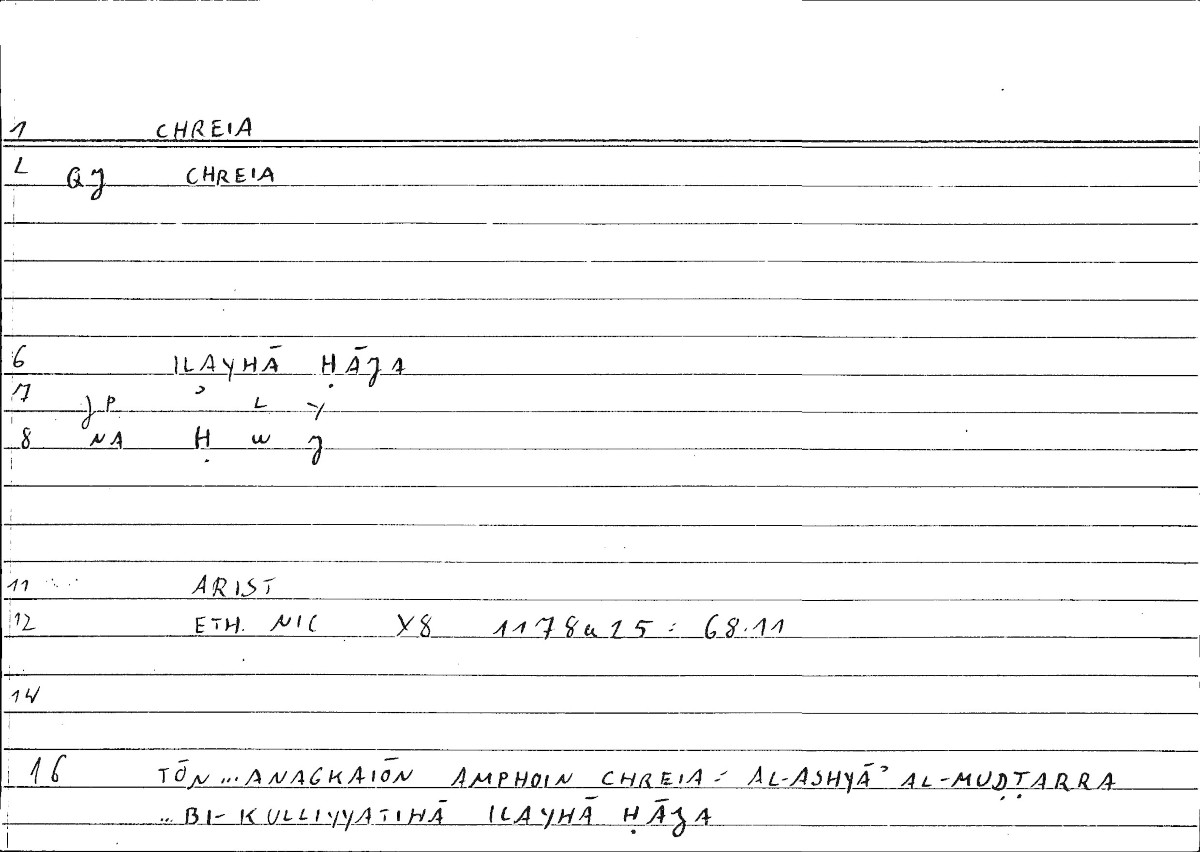 1 CHREIA
L QJ CHREIA
6 ILAYHĀ ḤĀJA
7 JP ʾ L Y
8 NA Ḥ W J
11 ARIST
12 ETH. NIC X8 1178a25 : 68.11
14
16 TŌN ... ANAGKAIŌN AMPHOIN CHREIA = AL-ASHYĀʾ AL-MUḌṬARRA
... BI-KULLIYYATIHĀ ILAYHĀ ḤĀJA